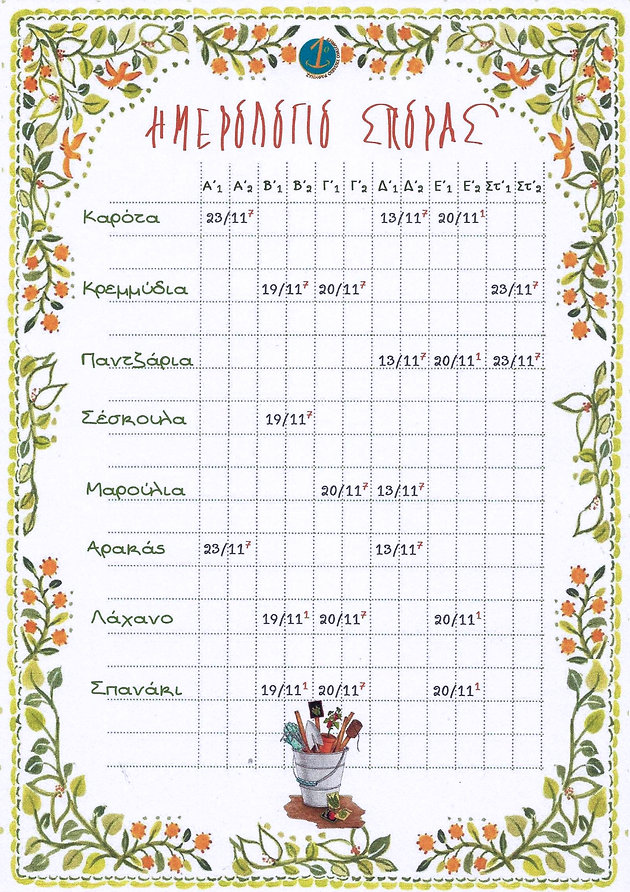 1ο
ΗΜΕΡΟΛΟΓΙΟ ΣΠΟΡΑΣ
Α΄1 Α΄2 Β΄1 Β΄2 Γ΄1 Γ΄2 Δ΄1 Δ΄2 Ε΄1 Ε΄2 Στ΄1 Στ΄2
Καρότα 23/11⁷ 13/11⁷ 20/11¹
Κρεμμύδια 19/11⁷ 20/11⁷ 23/11⁷
Παντζάρια 13/11⁷ 20/11¹ 23/11⁷
Σέσκουλα 19/11⁷
Μαρούλια 20/11⁷ 13/11⁷
Αρακάς 23/11⁷ 13/11⁷
Λάχανο 19/11¹ 20/11⁷ 20/11¹
Σπανάκι 19/11¹ 20/11⁷ 20/11¹